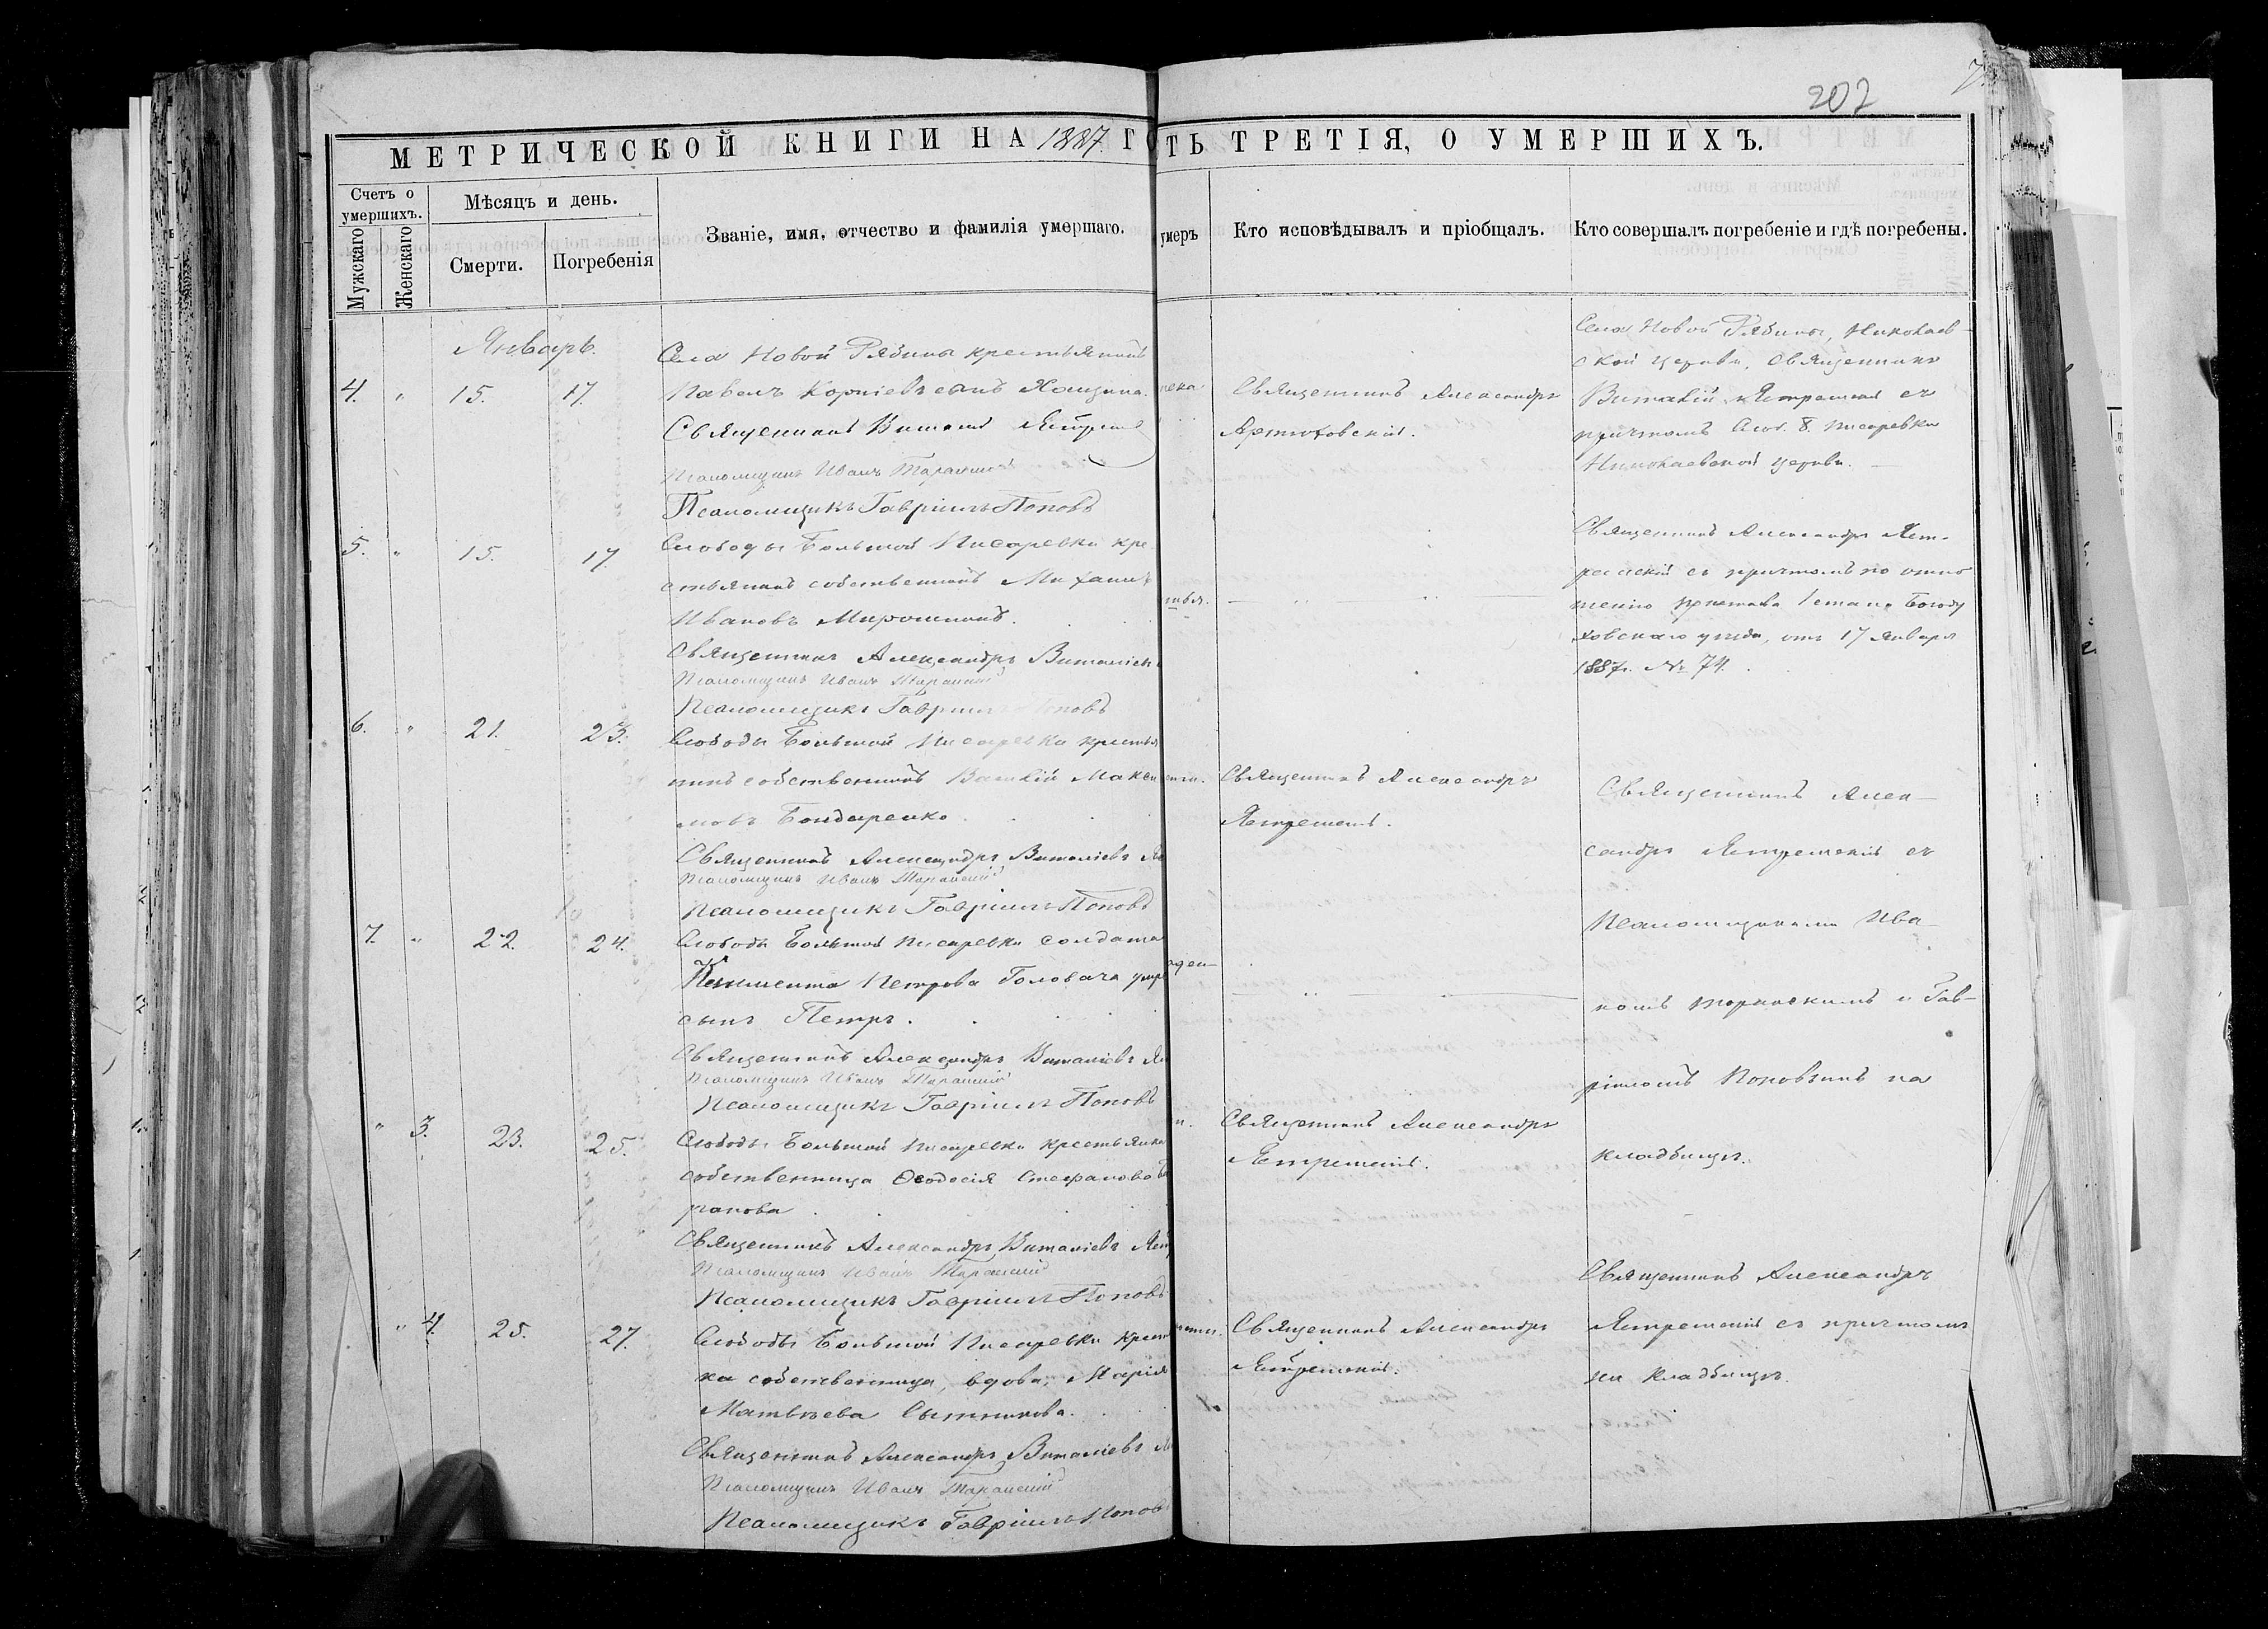 202
МЕТРИЧЕСКОЙ КНИГИ НА 1887 ГО
Счетъ о умершихъ.
Мужскаго
Женскаго
Мѣсяцъ и день.
Смерти.
Погребенія
Званіе, имя, отчество и фамилія умершаго.
Январь.
Села Новой Рябины крестьянинъ
4. " 15. 17. Павелъ Корніевъ сынъ
Священникъ Виталій
Псаломщикъ Иванъ
Псаломщикъ Гавріилъ Поповъ
5. " 15. 17 Слободы Большой Писаревки кре
стьянинъ собственникъ Михаилъ
Ивановъ Мирошникъ.
Священникъ Александръ Виталіев
Псаломщикъ Иванъ
Псаломщикъ Гавріилъ Поповъ
6. " 21. 23. Слободы Большой Писаревки крестья
нинъ собственникъ Василій Макси
мовъ Бондаренко
Священникъ Александръ Виталіевъ
Псаломщикъ Иванъ
Псаломщикъ Гавріилъ Поповъ
7. " 22. 24. Слободы Большой Писаревки солдата
Климента Петрова Головача
сынъ Петръ.
Священникъ Александръ Виталіевъ
Псаломщикъ Иванъ
Псаломщикъ Гавріилъ Поповъ
" 3. 23. 25. Слободы Большой Писаревки крестьянка
собственница Ѳеодосія Стефанова
Священникъ Александръ Виталіевъ
Псаломщикъ Иванъ
Псаломщикъ Гавріилъ Поповъ
" 4. 25. 27. Слободы Большой Писаревки крестья
ка собственница, вдова, Марія
Матвѣева Сытникова.
Священникъ Александръ Виталіевъ
Псаломщикъ Иванъ
Псаломщикъ Гавріилъ Попов
ТЬ ТРЕТІЯ, О УМЕРШИХЪ.
умеръ
Кто исповѣдывалъ и пріобщалъ.
Кто совершалъ погребеніе и гдѣ погребены.
Священникъ Александръ
Артюховскій.
Села Новой Рябины, Николаев-
ской церкви, священникъ
Виталій Ястремскій съ
причтомъ Слоб. Б. Писаревки
Николаевской церкви.
Священникъ Александръ Яст-
ремскій съ причтомъ по отно
шенію пристава 1 стана Богоду
ховскаго уѣзда, отъ 17 Января
1887 г. № 74.
Священникъ Александръ
Ястремскій.
Священникъ Алек-
сандръ Ястремскій съ
Псаломщиками Ива-
номъ и Гав-
ріиломъ Поповымъ на
кладбищѣ.
Священникъ Александръ
Ястремскій.
Священникъ Александръ
Ястремскій.
Священникъ Александръ
Ястремскій съ причтомъ
на кладбищѣ.